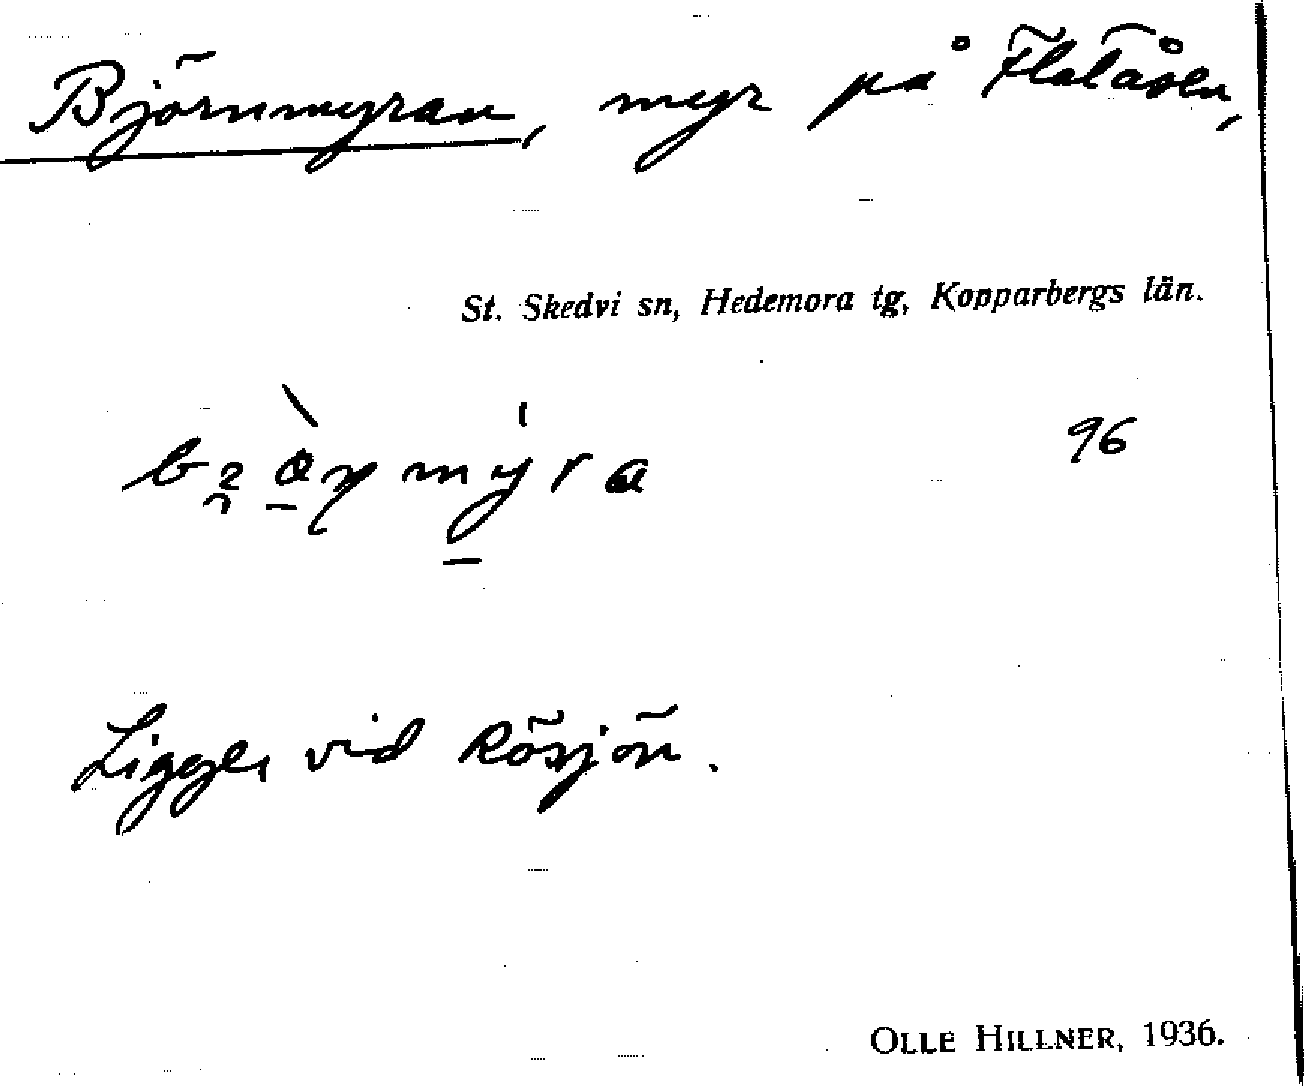 Björnmyran, myr på Flatåsen,
St. Skedvi sn, Hedemora tg, Kopparbergs län.
96
Ligger vid Rösjön.
OLLE HILLNER, 1936.